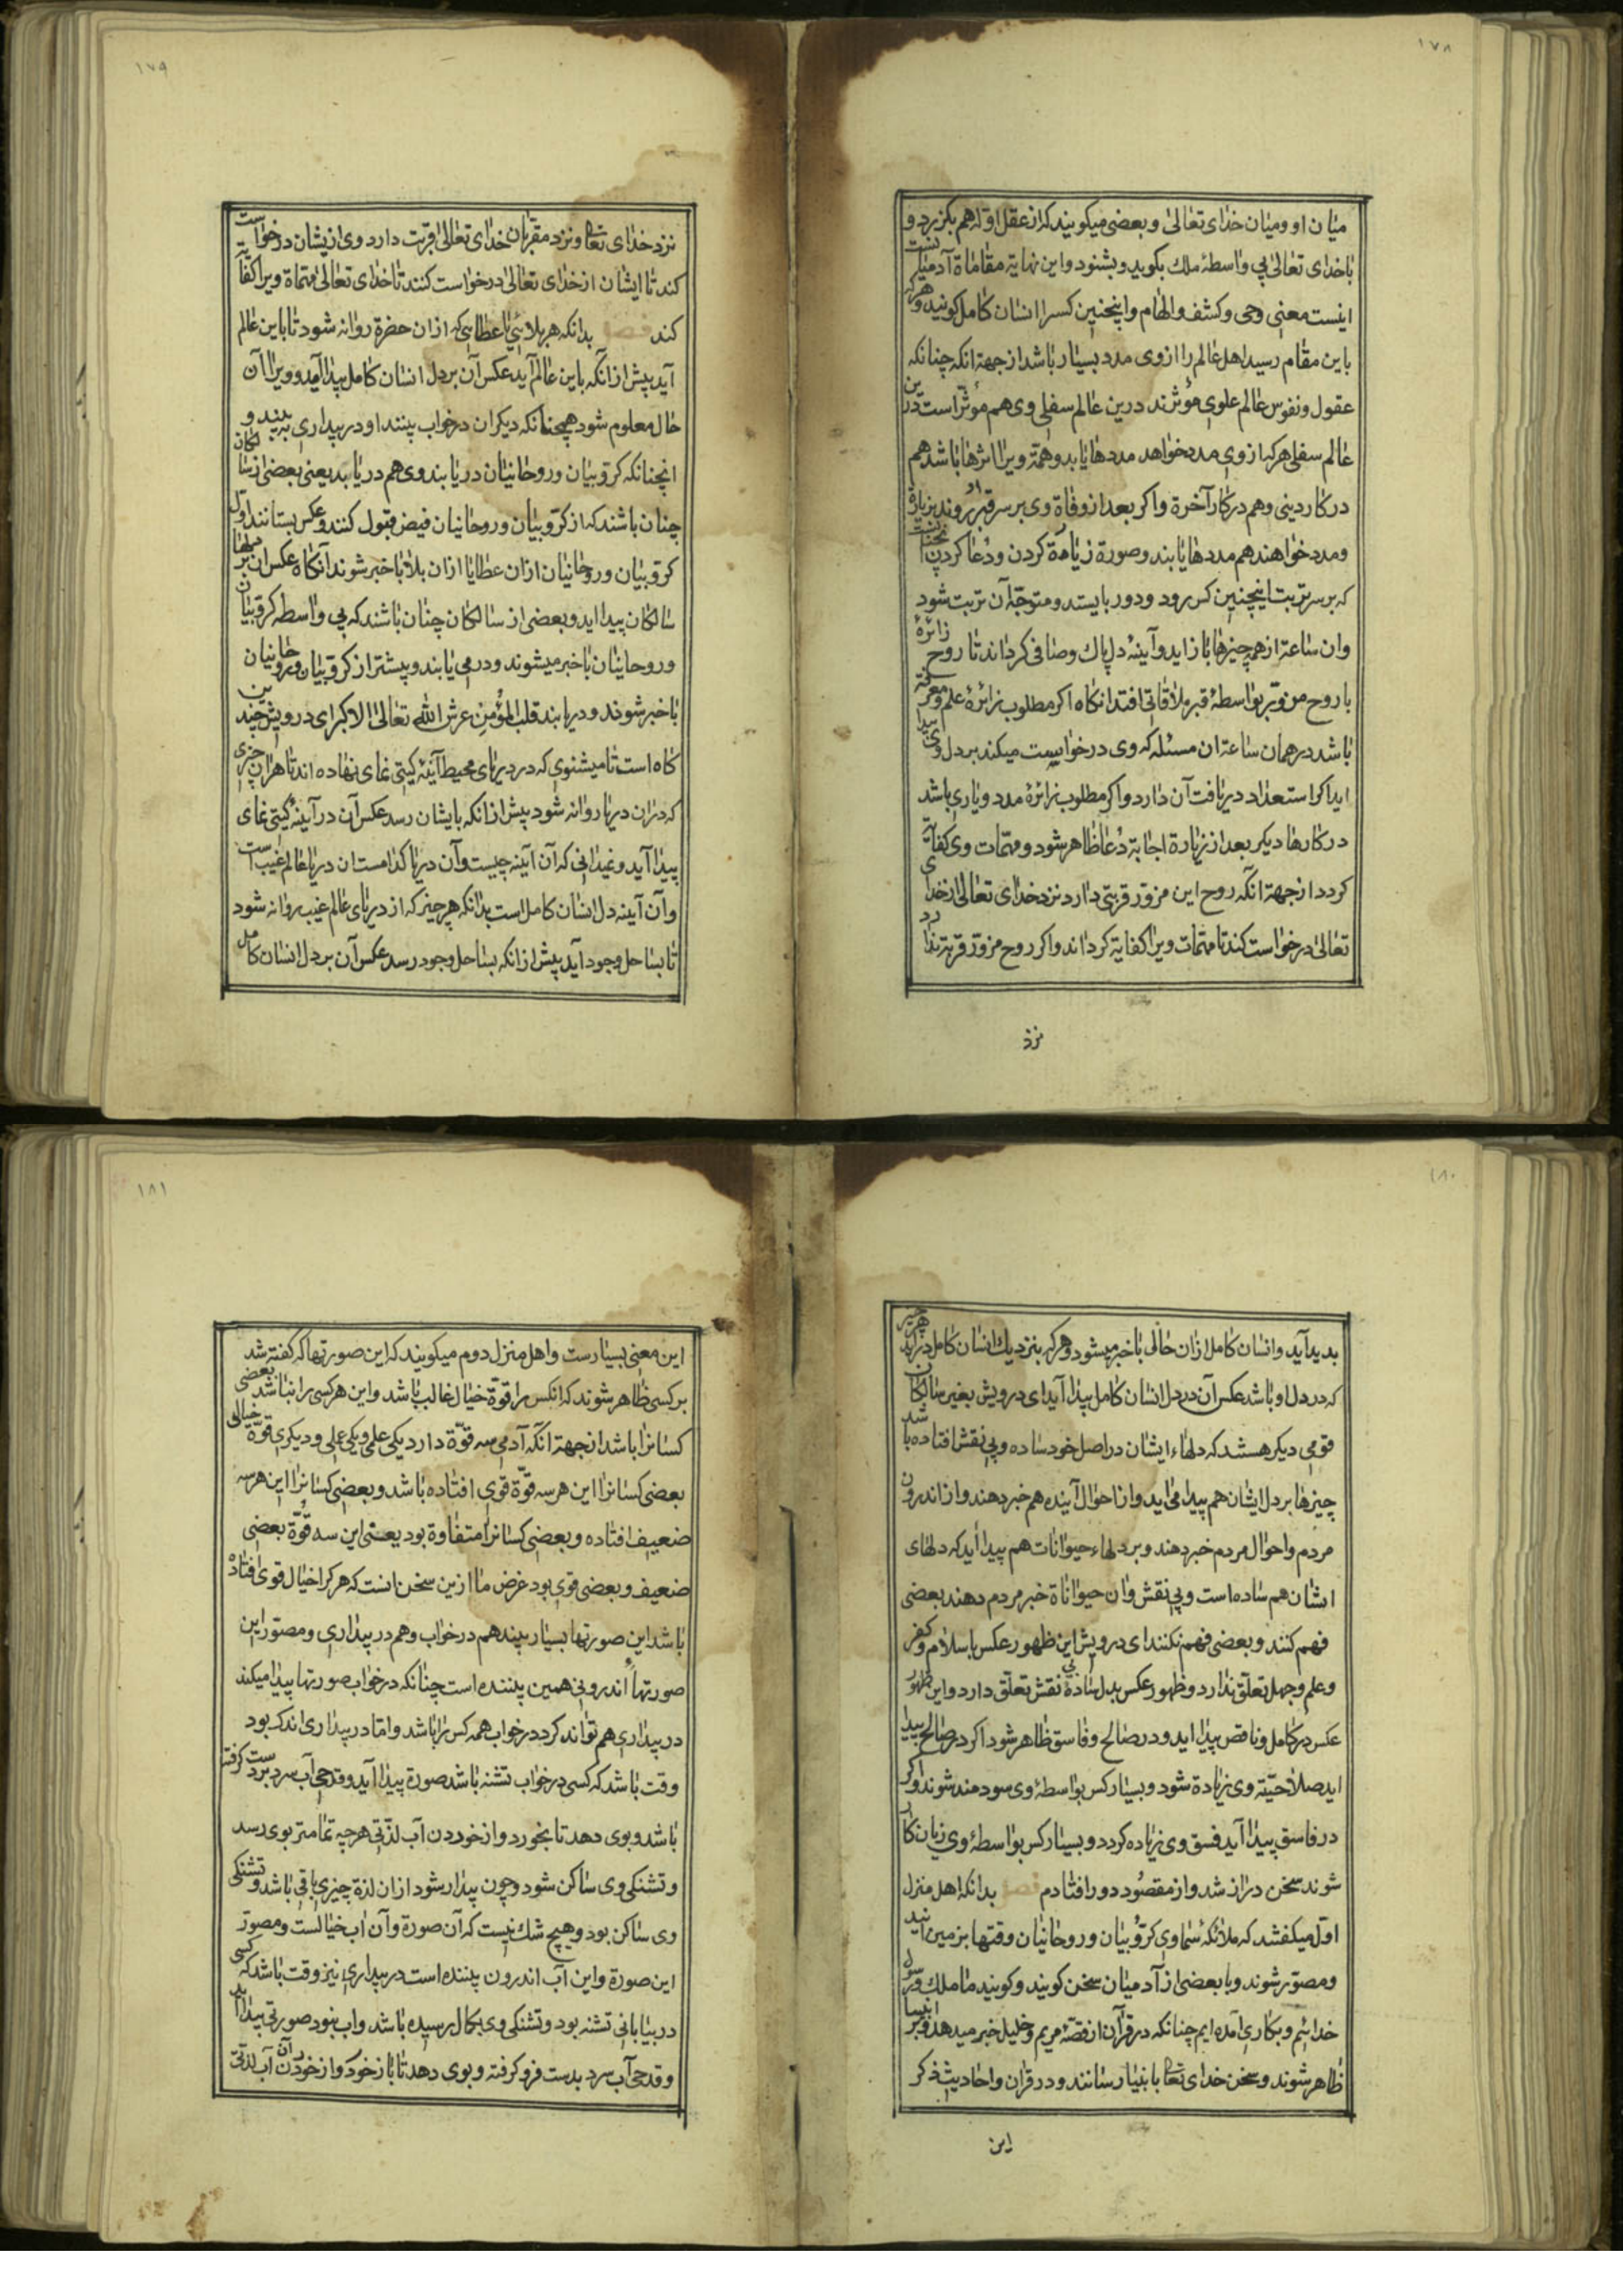 ١٧٨
میان او ومیان خدای تعالی وبعضی میکویند که از عقل اوّل هم بکزرد و
با خدای تعالی بی واسطهٔ ملك بکوید وبشنود واین نهایة مقاماة آدمیست
اینست معنی وحی وکشف والهام واینچنین کسرا انسان کامل کویند وهرکه
باین مقام رسید اهل عالم را ازوی مدد بسیار باشد از جهة انکه چنانکه
عقول ونفوس عالم علوی مؤثرند درین عالم سفلی وی هم مؤثر است درین
عالم سفلی هرکه ازوی مدد خواهد مددها یابد وهمة ویرا اثرها باشد هم
در کار دینی وهم در کار آخرة واکر بعد از وفاة وی بر سر قبر او روند بزیارة
ومدد خواهند هم مددها یابند وصورة زیارة کردن ودعا کردن انچنانست
که بر سر تربت اینچنین کس رود ودور بایستد ومتوجّه آن تربت شود
وان ساعة از همه چیزها باز اید وآینهٔ دل پاك وصافی کرداند تا روح زائرهٔ
با روح مزور بواسطهٔ قبر ملاقاتی افتد انکاه اکر مطلوب زائرهٔ علم ومعرفة
باشد در همان ساعة ان مسئله که وی درخواست میکند بر دل وی پیدا
اید اکر استعداد دریافت آن دارد واکر مطلوب زائرهٔ مدد ویاری باشد
در کارها دیکر بعد از زیارة اجابة دعا ظاهر شود ومهمات وی کفایة
کردد از جهة انکه روح این مزور قربتی دارد نزد خدای تعالی از خدای
تعالی درخواست کند تا مهمّات ویرا کفایة کرداند واکر روح مزور قربة ندارد
نزد
١٧٩
نزد خدای تعالی ونزد مقربان خدای تعالی قربت دارد وی ازیشان درخواست
کند تا ایشان از خدای تعالی درخواست کنند تا خدای تعالی مهمّاة ویرا کفایة
کند فصل بدانکه هر بلائی یا عطایی که ازان حضرة روانه شود تا باین عالم
آید پیش ازانکه باین عالم آید عکس آن بر دل انسان کامل پیدا آید وویرا آن
حال معلوم شود همچنانکه دیکران در خواب بینند او در بیداری ببیند و
انچنانکه کرّوبیان وروحانیان دریابند وی هم دریابد یعنی بعضی از سالکان
چنان باشند که از کرّوبیان وروحانیان فیض قبول کنند وعکس بستانند اوّل
کرّوبیان وروحانیان ازان عطا یا ازان بلا با خبر شوند آنکاه عکس ان بر دلهاء
سالکان پیدا اید وبعضی از سالکان چنان باشند که بی واسطه کرّوبیان
وروحانیان با خبر میشوند ودر می یابند وپیشتر از کرّوبیان وروحانیان
با خبر شوند ودریابند قلب المؤمن عرش الله تعالی الاکبر ای درویش چندین
کاه است تا میشنوی که در دریای محیط آینهٔ کیتی نمای نهاده اند تا هران چیزی
که دران دریا روانه شود پیش ازانکه بایشان رسد عکس آن در آینهٔ کیتی نمای
پیدا آید ونمیدانی که آن آینه چیست وآن دریا کدامست ان دریا عالم غیب است
وآن آینه دل انسان کامل است بدانکه هر چیز که از دریای عالم غیب روانه شود
تا بساحل وجود آید پیش ازانکه بساحل وجود رسد عکس آن بر دل انسان کامل
١٨٠
بدید آید وانسان کامل ازان حالی با خبر میشود وهرکه بنزدیك انسان کامل دراید هر چیز
که در دل او باشد عکس آن در دل انسان کامل پیدا آید ای درویش بغیر سالکان
قومی دیکر هستند که دلهاء ایشان در اصل خود ساده وبی نقش افتاده باشد
چیزها بر دل ایشان هم پیدا می اید واز احوال آینده هم خبر دهند واز اندرون
مردم واحوال مردم خبر دهند وبر دلهاء حیوانات هم پیدا اید که دلهای
ایشان هم ساده است وبی نقش وان حیواناة خبر مردم دهند بعضی
فهم کنند وبعضی فهم نکنند ای درویش این ظهور عکس باسلام وکفر
وعلم وجهل تعلّق ندارد وظهور عکس بدل سادهٔ بی نقش تعلّق دارد واین ظهور
عکس در کامل وناقص پیدا اید ودر صالح وفاسق ظاهر شود اکر در صالح پیدا
اید صلاحیّة وی زیادة شود وبسیار کس بواسطهٔ وی سودمند شوند واکر
در فاسق پیدا آید فسق وی زیاده کردد وبسیار کس بواسطهٔ وی زیان کار
شوند سخن دراز شد واز مقصود دور افتادم فصل بدانکه اهل منزل
اوّل میکفتند که ملائکهٔ سماوی کرّوبیان وروحانیان وقتها بزمین ایند
ومصوّر شوند وبا بعضی از آدمیان سخن کویند وکویند ما ملك ورسول
خدائیم وبکاری آمده ایم چنانکه در قرآن از قصّهٔ مریم وخلیل خبر میدهد وبر انبیا
ظاهر شوند وسخن خدای تعالی بانبیا رسانند ودر قران واحادیث ذکر
این
١٨١
این معنی بسیارست واهل منزل دوم میکویند که این صورتها که کفته شد
بر کسی ظاهر شوند که انکس را قوّة خیال غالب باشد واین هر کسی را نباشد بعضی
کسانرا باشد از جهة انکه آدمی سه قوّة دارد یکی علمی ویکی عملی ودیکری قوّة خیالی
بعضی کسانرا این هر سه قوّة قوی افتاده باشد وبعضی کسانرا این هر سه
ضعیف افتاده وبعضی کسانرا متفاوة بود یعنی این سه قوّة بعضی
ضعیف وبعضی قوی بود غرض ما ازین سخن انست که هر کرا خیال قوی افتادهٔ
باشد این صورتها بسیار بیند هم در خواب وهم در بیداری ومصوّر این
صورتها اندرونی همین بیننده است چنانکه در خواب صورتها پیدا میکند
در بیداری هم تواند کرد در خواب همه کس را باشد واما در بیداری اندك بود
وقت باشد که کسی در خواب تشنه باشد صورة پیدا آید وقدحی آب سرد بر دست کرفته
باشد وبوی دهد تا بخورد واز خوردن آب لذّتی هر چه تمامتر بوی رسد
وتشنکی وی ساکن شود وچون بیدار شود ازان لذة چیزی باقی باشد وتشنکی
وی ساکن بود وهیچ شك نیست که آن صورة وآن آب خیالست ومصوّر
این صورة واین آب اندرون بیننده است در بیداری نیز وقت باشد که کسی
در بیابانی تشنه بود وتشنکی وی بکمال رسیده باشد واب نبود صورتی پیدا آید
وقدحی آب سرد بدست فرو کرفته وبوی دهد تا باز خورد واز خوردن آن آب لذّتی